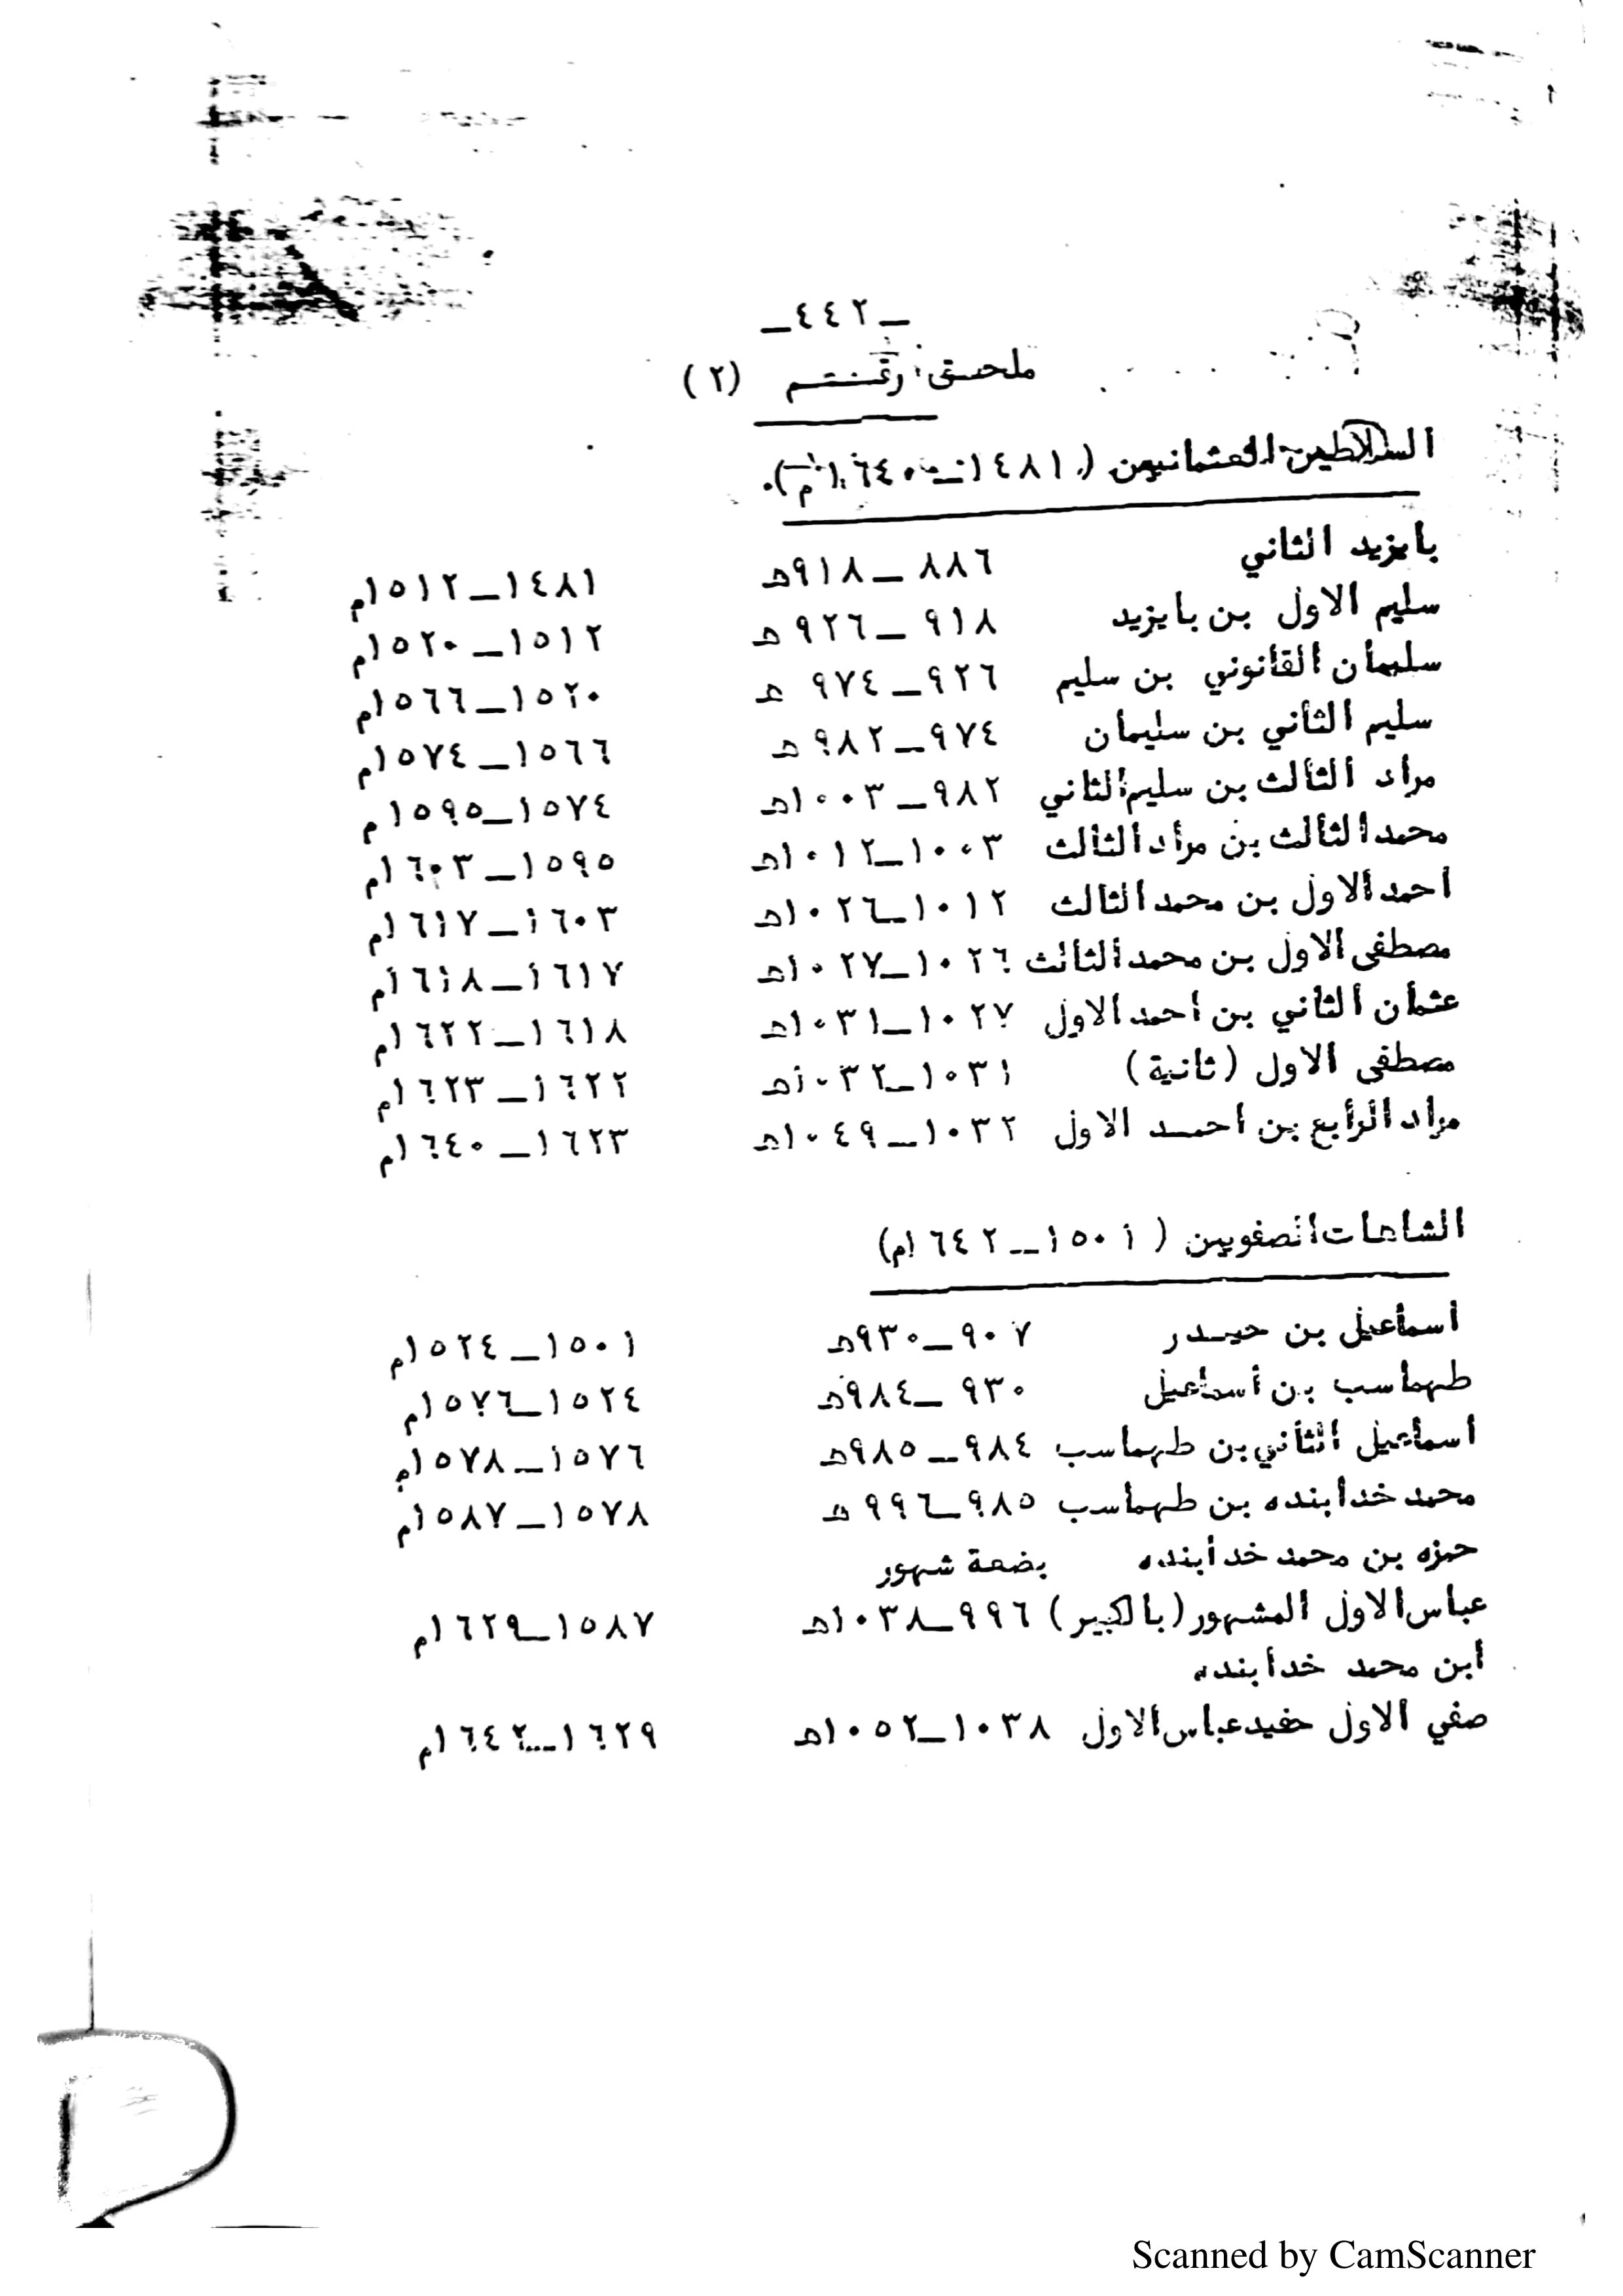 ـ٤٤٢ـ
ملحق رقم (٢)
السلاطين العثمانيين (١٤٨١ـ١٦٤٠م).
بايزيد الثاني ٨٨٦ ـ ٩١٨هـ ١٤٨١ـ١٥١٢م
سليم الاول بن بايزيد ٩١٨ ـ٩٢٦ هـ ١٥١٢ـ ١٥٢٠م
سليمان القانوني بن سليم ٩٢٦ـ ٩٧٤ هـ ١٥٢٠ـ١٥٦٦م
سليم الثاني بن سليمان ٩٧٤ـ٩٨٢ هـ ١٥٦٦ـ ١٥٧٤م
مراد الثالث بن سليم الثاني ٩٨٢ ـ ١٠٠٣هـ ١٥٧٤ـ١٥٩٥م
محمد الثالث بن مراد الثالث ١٠٠٣ـ١٠١٢هـ ١٥٩٥ـ ١٦٠٣م
احمد الاول بن محمد الثالث ١٠١٢ـ١٠٢٦هـ ١٦٠٣ـ١٦١٧م
مصطفى الاول بن محمد الثالث ١٠٢٦ـ١٠٢٧هـ ١٦١٧ـ١٦١٨م
عثمان الثاني بن احمد الاول ١٠٢٧ـ١٠٣١هـ ١٦١٨ـ١٦٢٢م
مصطفى الاول (ثانية) ١٠٣١ـ١٠٣٢هـ ١٦٢٢ـ١٦٢٣م
مراد الرابع بن احمد الاول ١٠٣٢ـ١٠٤٩هـ ١٦٢٣ـ ١٦٤٠م
الشاهات الصفويين ( ١٥٠١ـ ١٦٤٢م)
اسماعيل بن حيدر ٩٠٧ـ٩٣٠هـ ١٥٠١ـ١٥٢٤م
طهماسب بن أسماعيل ٩٣٠ ـ٩٨٤هـ ١٥٢٤ـ١٥٧٦م
اسماعيل الثاني بن طهماسب ٩٨٤ـ٩٨٥هـ ١٥٧٦ـ١٥٧٨م
محمد خدابنده بن طهماسب ٩٨٥ـ٩٩٦ هـ ١٥٧٨ـ١٥٨٧م
حمزه بن محمد خدابنده بضعة شهور
عباس الاول المشهور (بالكبير) ٩٩٦ـ١٠٣٨هـ ١٥٨٧ـ١٦٢٩م
ابن محمد خدابنده
صفي الاول حفيد عباس الاول ١٠٣٨ـ١٠٥٢هـ ١٦٢٩ـ١٦٤٢م
Scanned by CamScanner